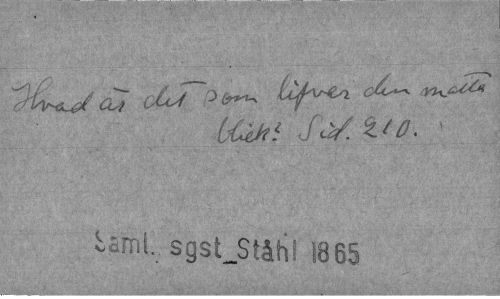 Hvad är det som lifvar den matta
blick? Sid. 210.
Saml. sgst_Ståhl 1865